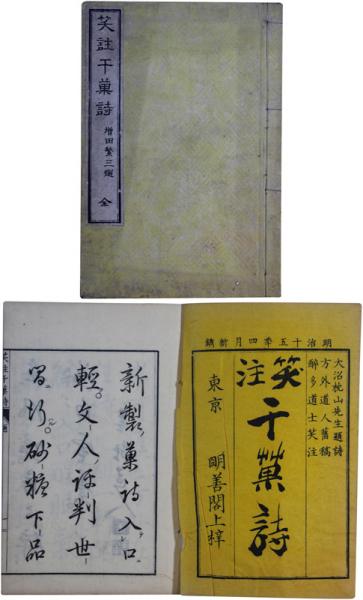 笑註干菓詩 増田繁三編 全
明治十五季四月新鐫
大沼枕山先生題詩
方外道人舊稿
醉多道士笑注
笑注干菓詩
東京 明善閣上梓
新製菓詩入口
輕文人評判世
行砂糖下品
笑註干菓詩